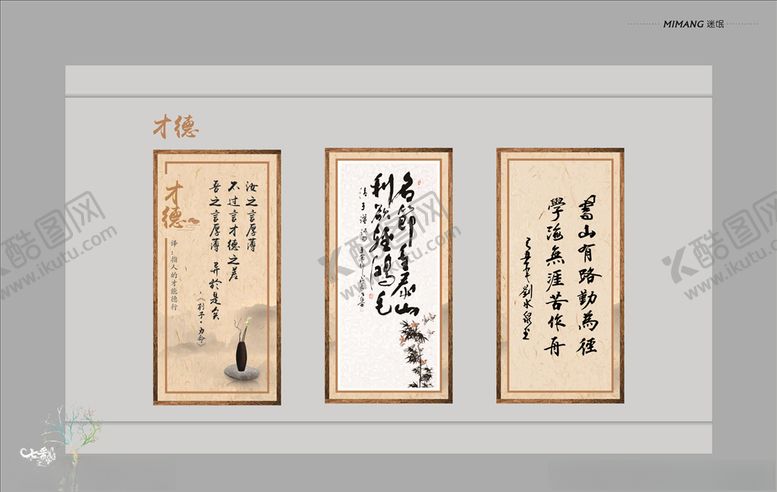 MIMANG 迷氓
才德
才德
译：指人的才能德行
汝之言厚薄
不过言才德之差
吾之言厚薄 异於是矣
《列子·力命》
名節重泰山
利欲輕鴻毛
書山有路勤為徑
學海無涯苦作舟
酷图网
www.ikutu.com
酷图网
www.ikutu.com
酷图网
www.ikutu.com